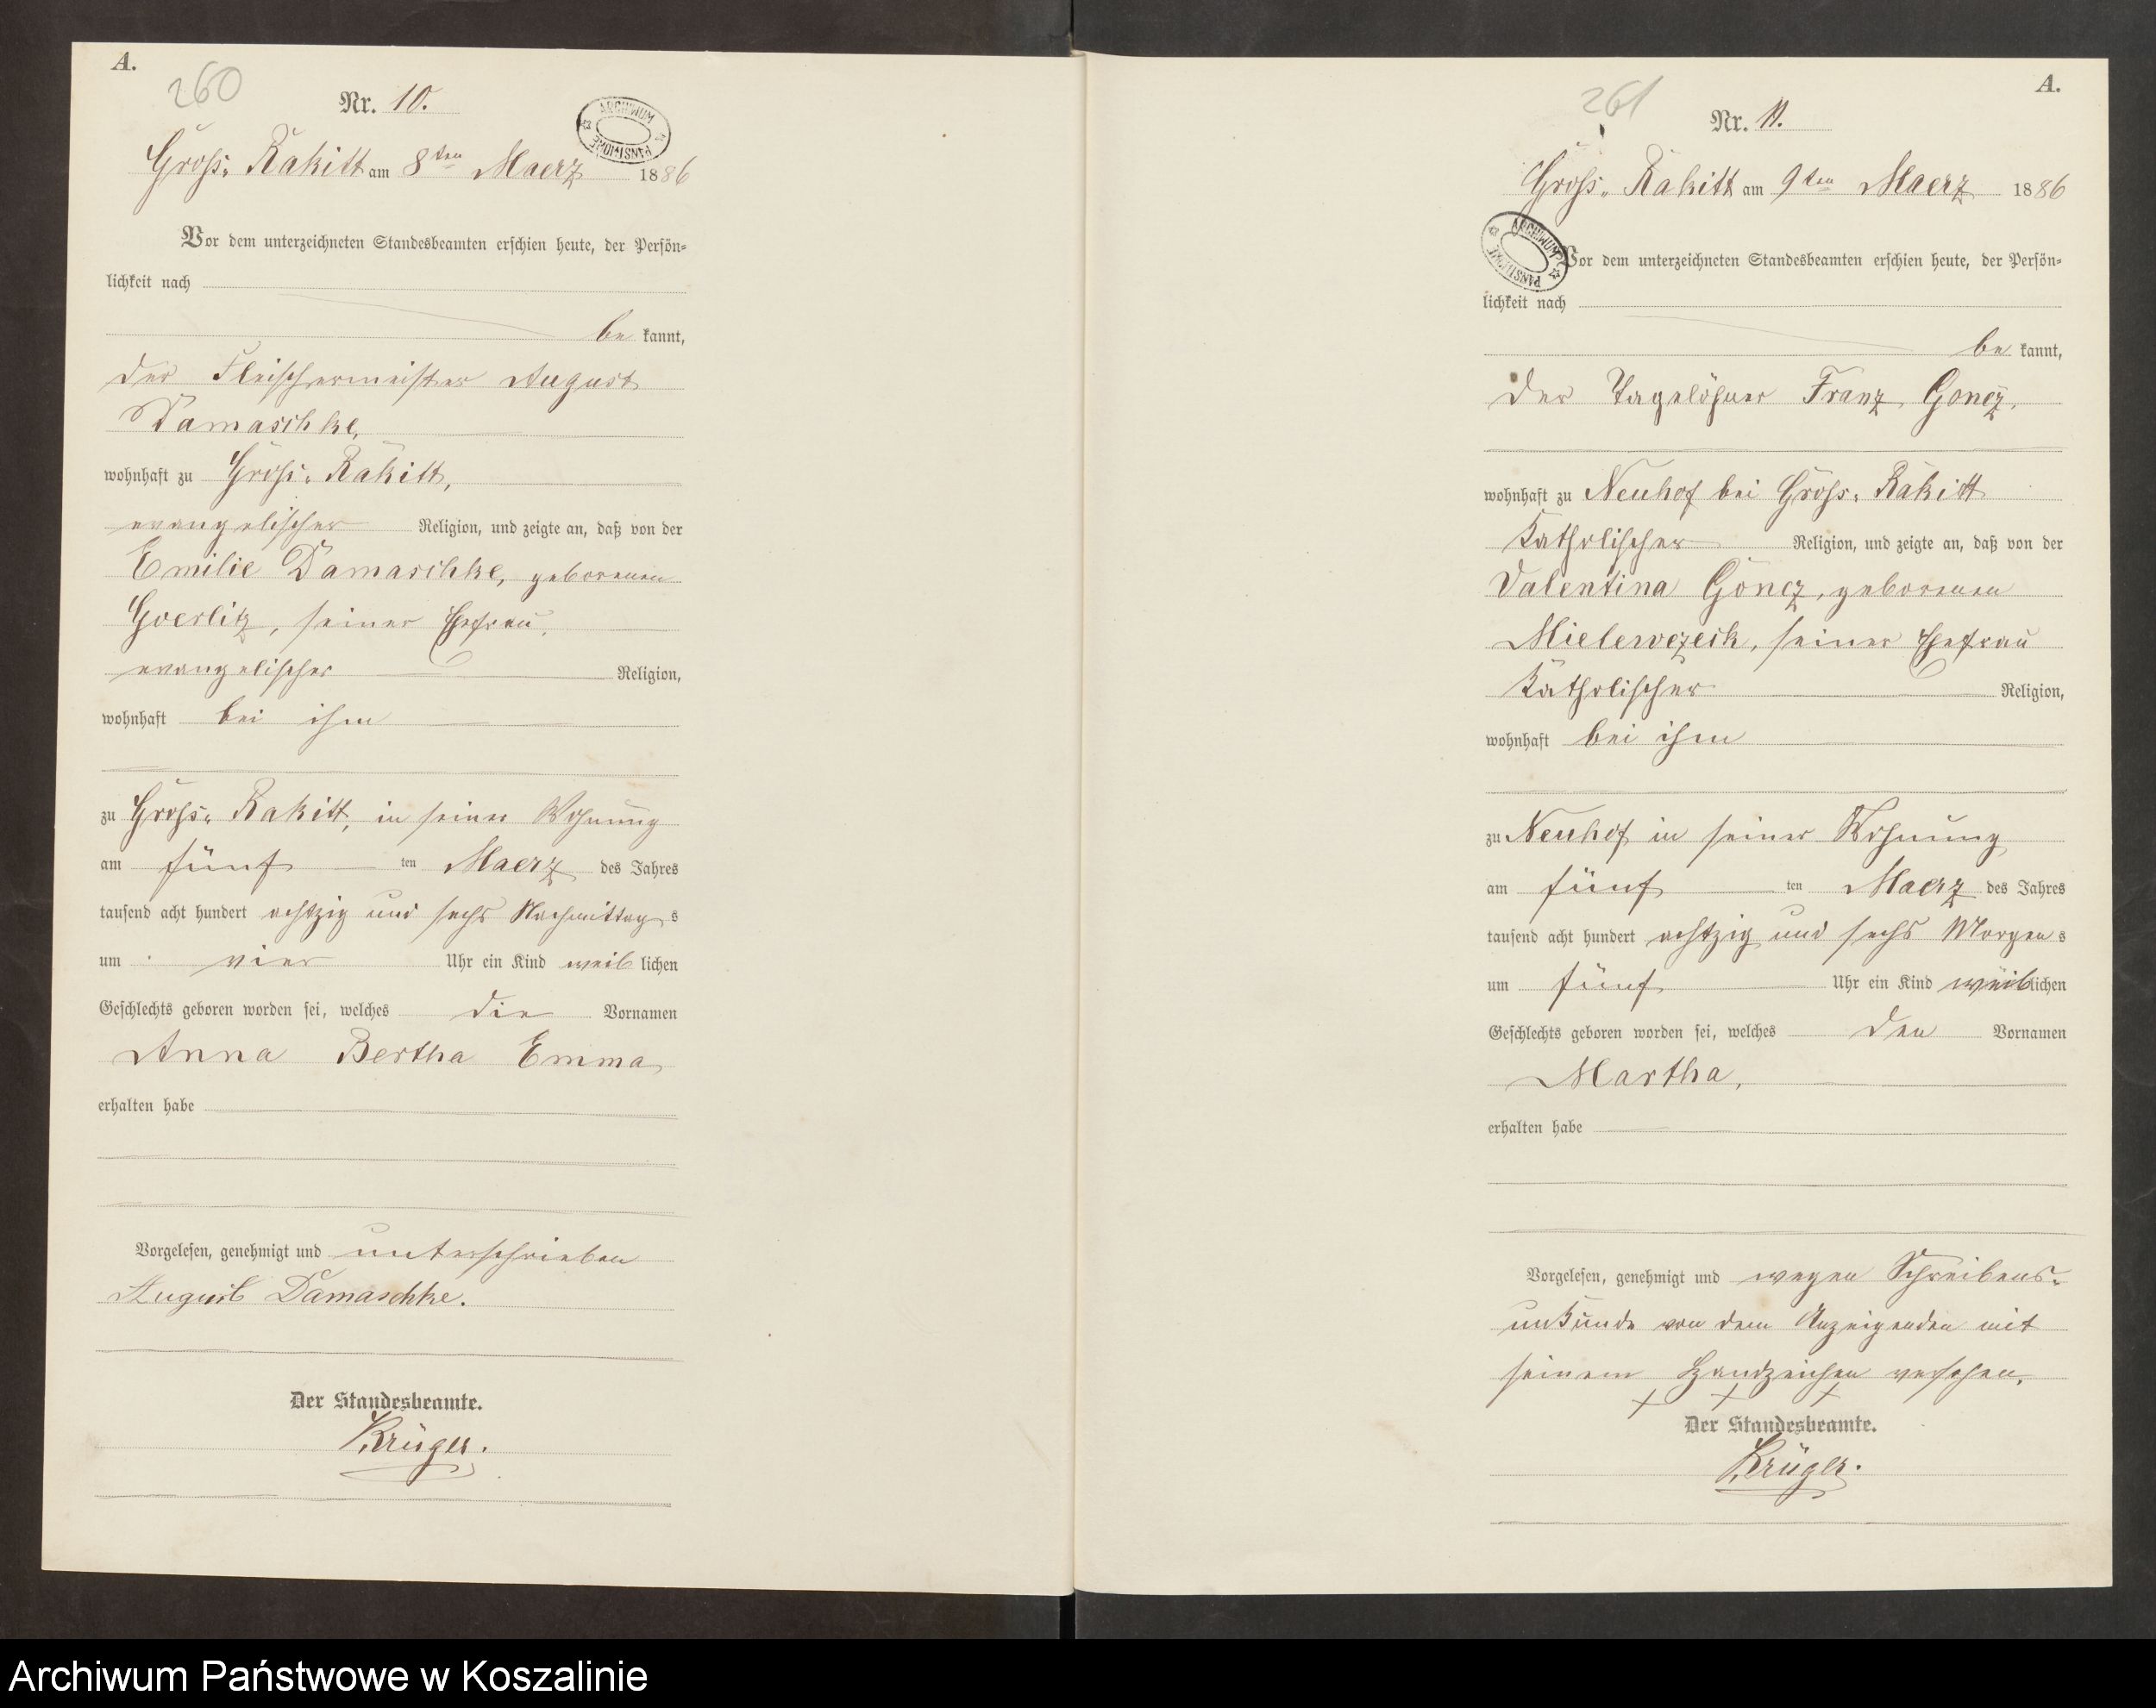 A.
260
Nr. 10.
ARCHIWUM PAŃSTWOWE
Gross- Rakitt am 8ten Maerz 1886
Vor dem unterzeichneten Standesbeamten erschien heute, der Persön-
lichkeit nach
be kannt,
der Fleischermeister August
Damaschke,
wohnhaft zu Gross- Rakitt,
evangelischer Religion, und zeigte an, daß von der
Emilie Damaschke, geborenen
Goerlitz, seiner Ehefrau,
evangelischer Religion,
wohnhaft bei ihm
zu Gross- Rakitt, in seiner Wohnung
am fünf ten Maerz des Jahres
tausend acht hundert achtzig und sechs Nachmittag s
um vier Uhr ein Kind weib lichen
Geschlechts geboren worden sei, welches die Vornamen
Anna Bertha Emma
erhalten habe
Vorgelesen, genehmigt und unterschrieben
August Damaschke.
Der Standesbeamte.
Krüger.
A.
261
Nr. 11.
Gross- Rakitt am 9ten Maerz 1886
ARCHIWUM PAŃSTWOWE
Vor dem unterzeichneten Standesbeamten erschien heute, der Persön-
lichkeit nach
be kannt,
der Tagelöhner Franz Goncz,
wohnhaft zu Neuhof bei Gross- Rakitt
Katholischer Religion, und zeigte an, daß von der
Valentina Goncz, geborenen
Mielewczeck, seiner Ehefrau
Katholischer Religion,
wohnhaft bei ihm
zu Neuhof in seiner Wohnung
am fünf ten Maerz des Jahres
tausend acht hundert achtzig und sechs Morgen s
um fünf Uhr ein Kind weiblichen
Geschlechts geboren worden sei, welches den Vornamen
Martha,
erhalten habe
Vorgelesen, genehmigt und wegen Schreibens-
unkunde von dem Anzeigenden mit
seinem Handzeichen versehen.
+ + +
Der Standesbeamte.
Krüger.
Archiwum Państwowe w Koszalinie